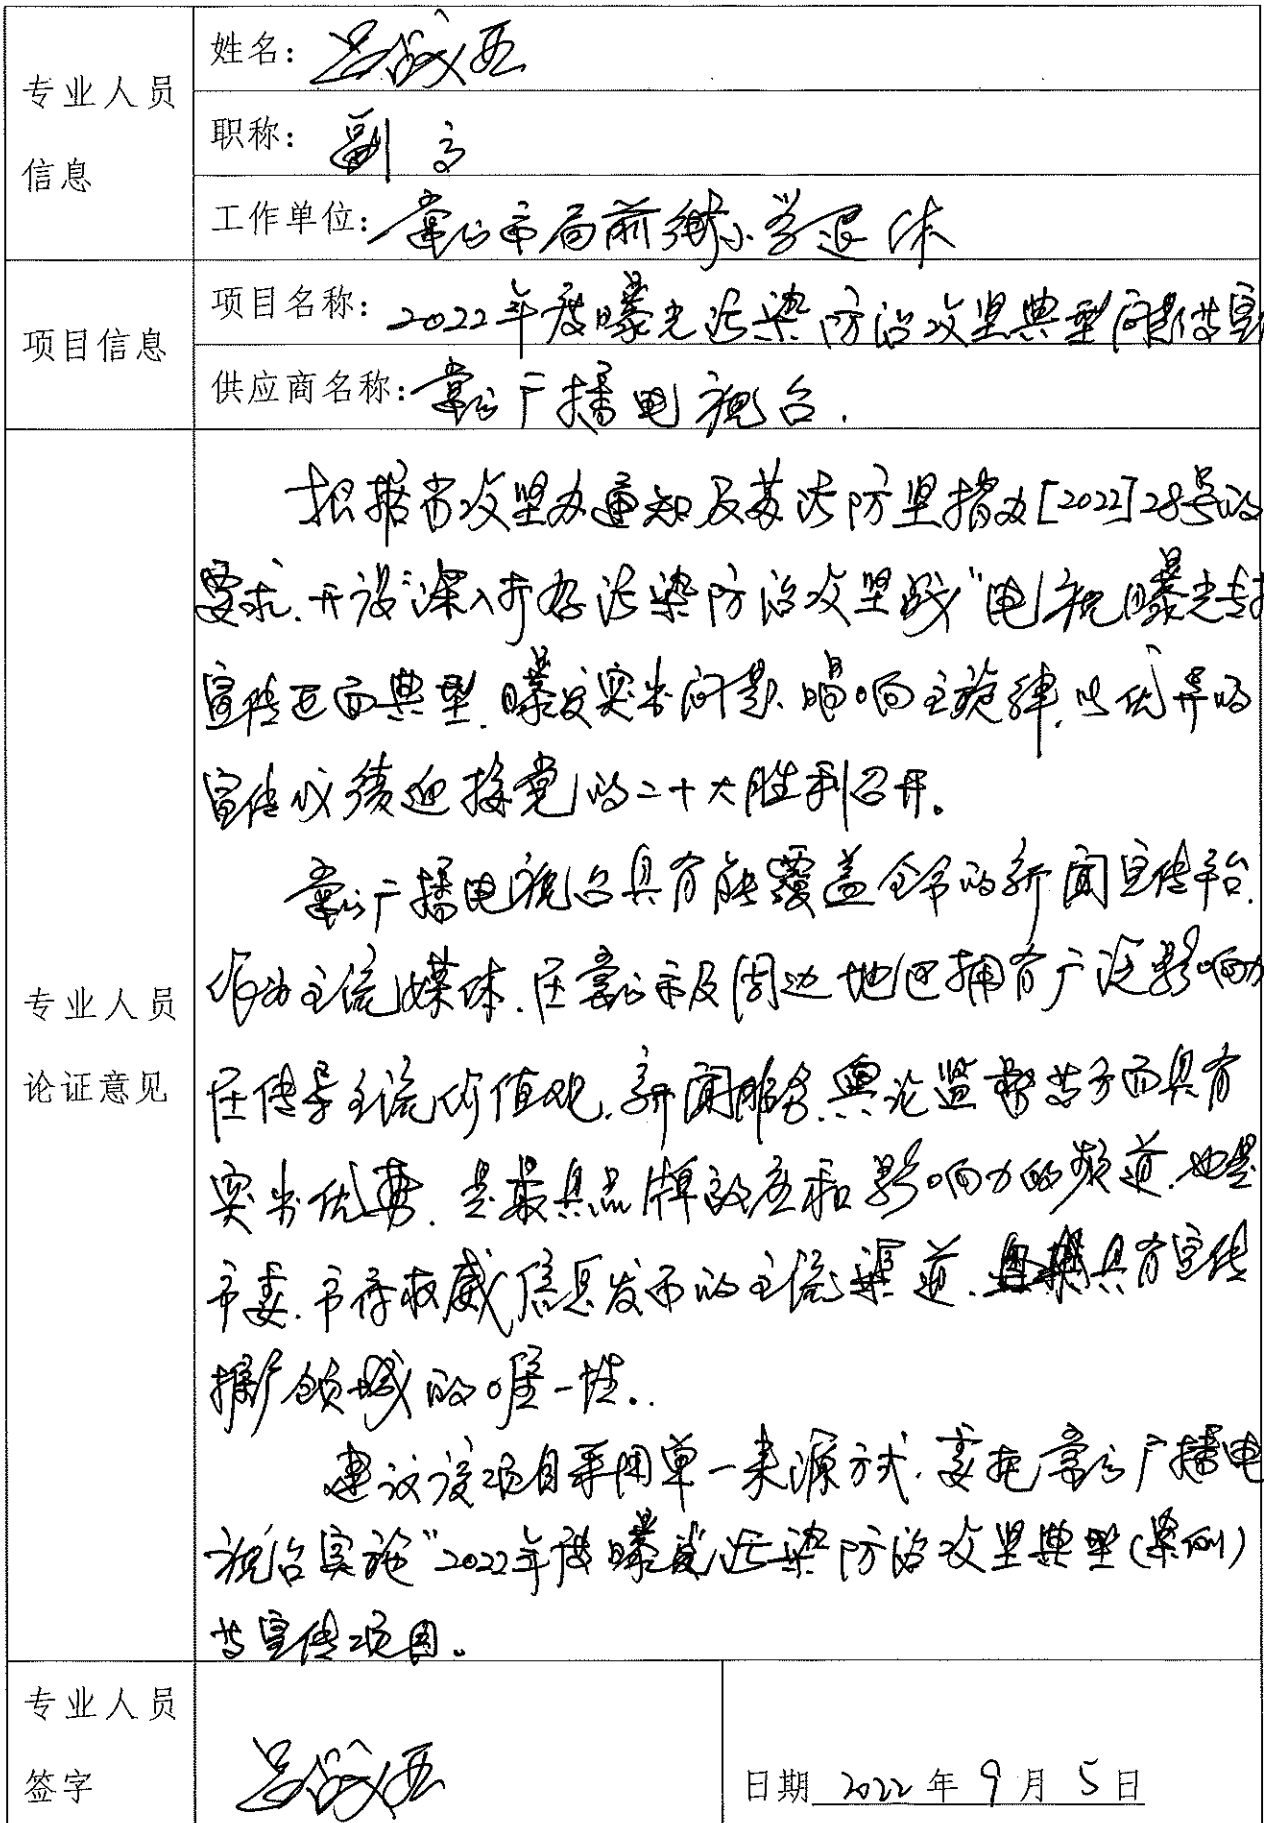 专业人员
信息
姓名：吕
职称：副高
工作单位：常州市局前街小学退休
项目信息
项目名称：2022年度曝光污染防治攻坚典型问题等宣
供应商名称：常州广播电视台.
专业人员
论证意见
根据省攻坚办通知及苏污防坚指办[2022]28号的
要求.开设"深入打好污染防治攻坚战"电视曝光专
宣传正面典型.曝光突出问题.唱响主旋律.以优异的
宣传成绩迎接党的二十大胜利召开。
常州广播电视台具有能覆盖全市的新闻宣传平台.
作为主流媒体.在常州市及周边地区拥有广泛影响力
在传导主流价值观.新闻服务.舆论监督等方面具有
突出优势.是最具品牌效应和影响力的频道.也是
市委.市府权威信息发布的主流渠道.具有宣传
推广领域的唯一性。
建议该项目采用单一来源方式.委托常州广播电
视台实施"2022年度曝光污染防治攻坚典型(案例)
等宣传项目。
专业人员
签字
吕
日期 2022年9月5日